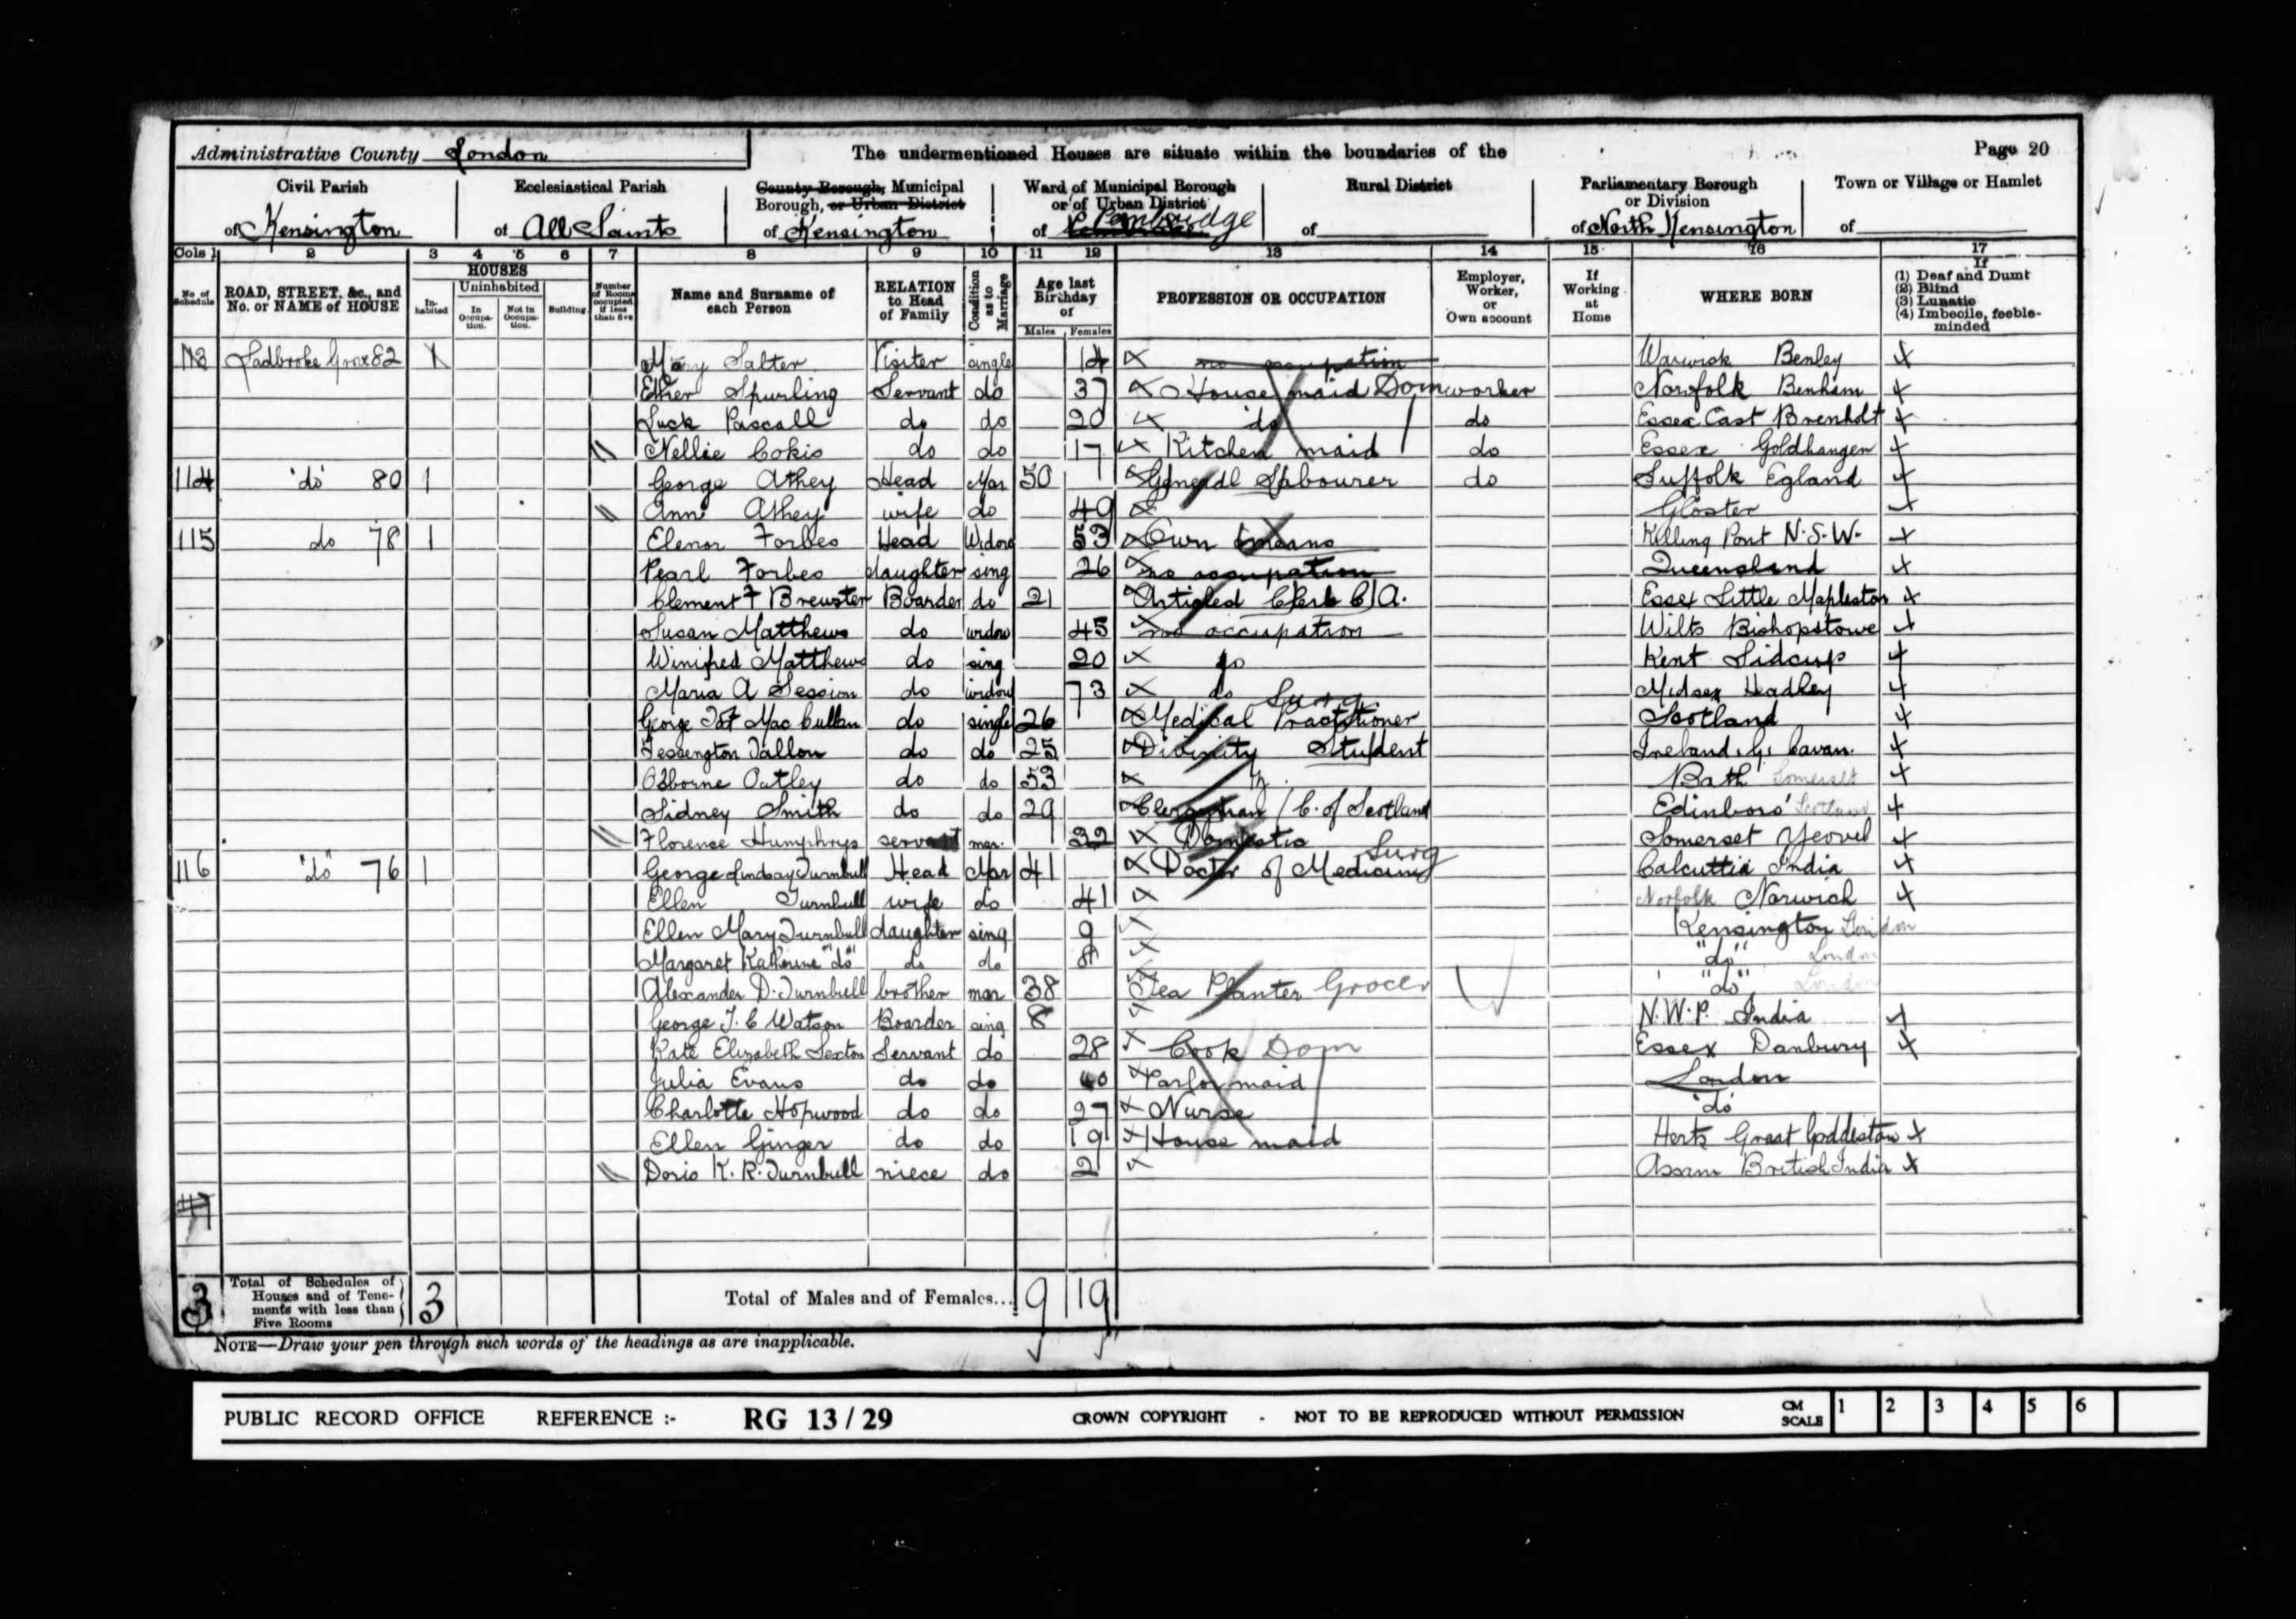 Administrative County London The undermentioned Houses are situate within the boundaries of the Page 20
Civil Parish of Kensington
Ecclesiastical Parish of All Saints
County Borough, Municipal Borough, or Urban District of Kensington
Ward of Municipal Borough or of Urban District of Pembridge
Rural District of
Parliamentary Borough or Division of North Kensington
Town or Village or Hamlet of
Cols 1 2 3 4 5 6 7 8 9 10 11 12 13 14 15 16 17
No of Schedule
ROAD, STREET, &c., and No. or NAME of HOUSE
HOUSES
Inhabited
Uninhabited
In Occupation.
Not in Occupation.
Building.
Number of Rooms occupied if less than five
Name and Surname of each Person
RELATION to Head of Family
Condition as to Marriage
Age last Birthday of
Males Females
PROFESSION OR OCCUPATION
Employer, Worker, or Own account
If Working at Home
WHERE BORN
If
(1) Deaf and Dumb
(2) Blind
(3) Lunatic
(4) Imbecile, feeble-minded
Ladbroke Grove 82 Mary Salter Visiter single 14 no occupation Warwick
Spurling Servant do 37 House maid Dom worker Norfolk Benham
Pascall do do 20 do do Essex East
Nellie do do 17 Kitchen maid do Essex Goldhangen
114 do 80 1 George Athey Head Mar 50 General Labourer do Suffolk Egland
Ann Athey wife do 49 Gloster
115 do 78 1 Elenor Forbes Head Widow 53 Own means Killing Pont N.S.W.
Pearl Forbes daughter sing 26 no occupation Queensland
Clement F Brewster Boarder do 21 Articled Clerk C/A. Essex Little Mapleston
Susan Matthews do widow 45 no occupation Wilts Bishopstowe
Winifred Matthews do sing 20 do Kent Sidcup
Maria A Session do widow 73 do Midsex Hadley
George Mac Cullan do single 26 Medical Practitioner Surg. Scotland
Tessington Tallon do do 25 Divinity Student Ireland, Cavan.
Osborne Oatley do do 53 Bath Somerset
Sidney Smith do do 29 Clergyman / C. of Scotland Edinboro' Scotland
Florence Humphrys servant mar. 22 Domestic Somerset Yeovel
116 "do" 76 1 George Lindsay Turnbull Head Mar 41 Doctor of Medicine Surg Calcuttia India
Ellen Turnbull wife do 41 Norfolk Norwich
Ellen Mary Turnbull daughter sing 9 Kensington London
Margaret Katherine "do" do do 8 "do" London
Alexander D. Turnbull brother mar 38 Tea Planter Grocer "do" London
George J. C Watson Boarder sing 8 N.W.P. India
Kate Elizabeth Sexton Servant do 28 Cook Dom Essex Danbury
Julia Evans do do 40 Parlor maid London
Charlotte Hopwood do do 27 Nurse "do"
Ellen Ginger do do 19 House maid Herts Great Goddestow
Doris K. R. Turnbull niece do 2 Assam British India
3 Total of Schedules of Houses and of Tenements with less than Five Rooms 3 Total of Males and of Females... 9 19
NOTE—Draw your pen through such words of the headings as are inapplicable.
PUBLIC RECORD OFFICE REFERENCE :- RG 13/29 CROWN COPYRIGHT - NOT TO BE REPRODUCED WITHOUT PERMISSION CM SCALE 1 2 3 4 5 6